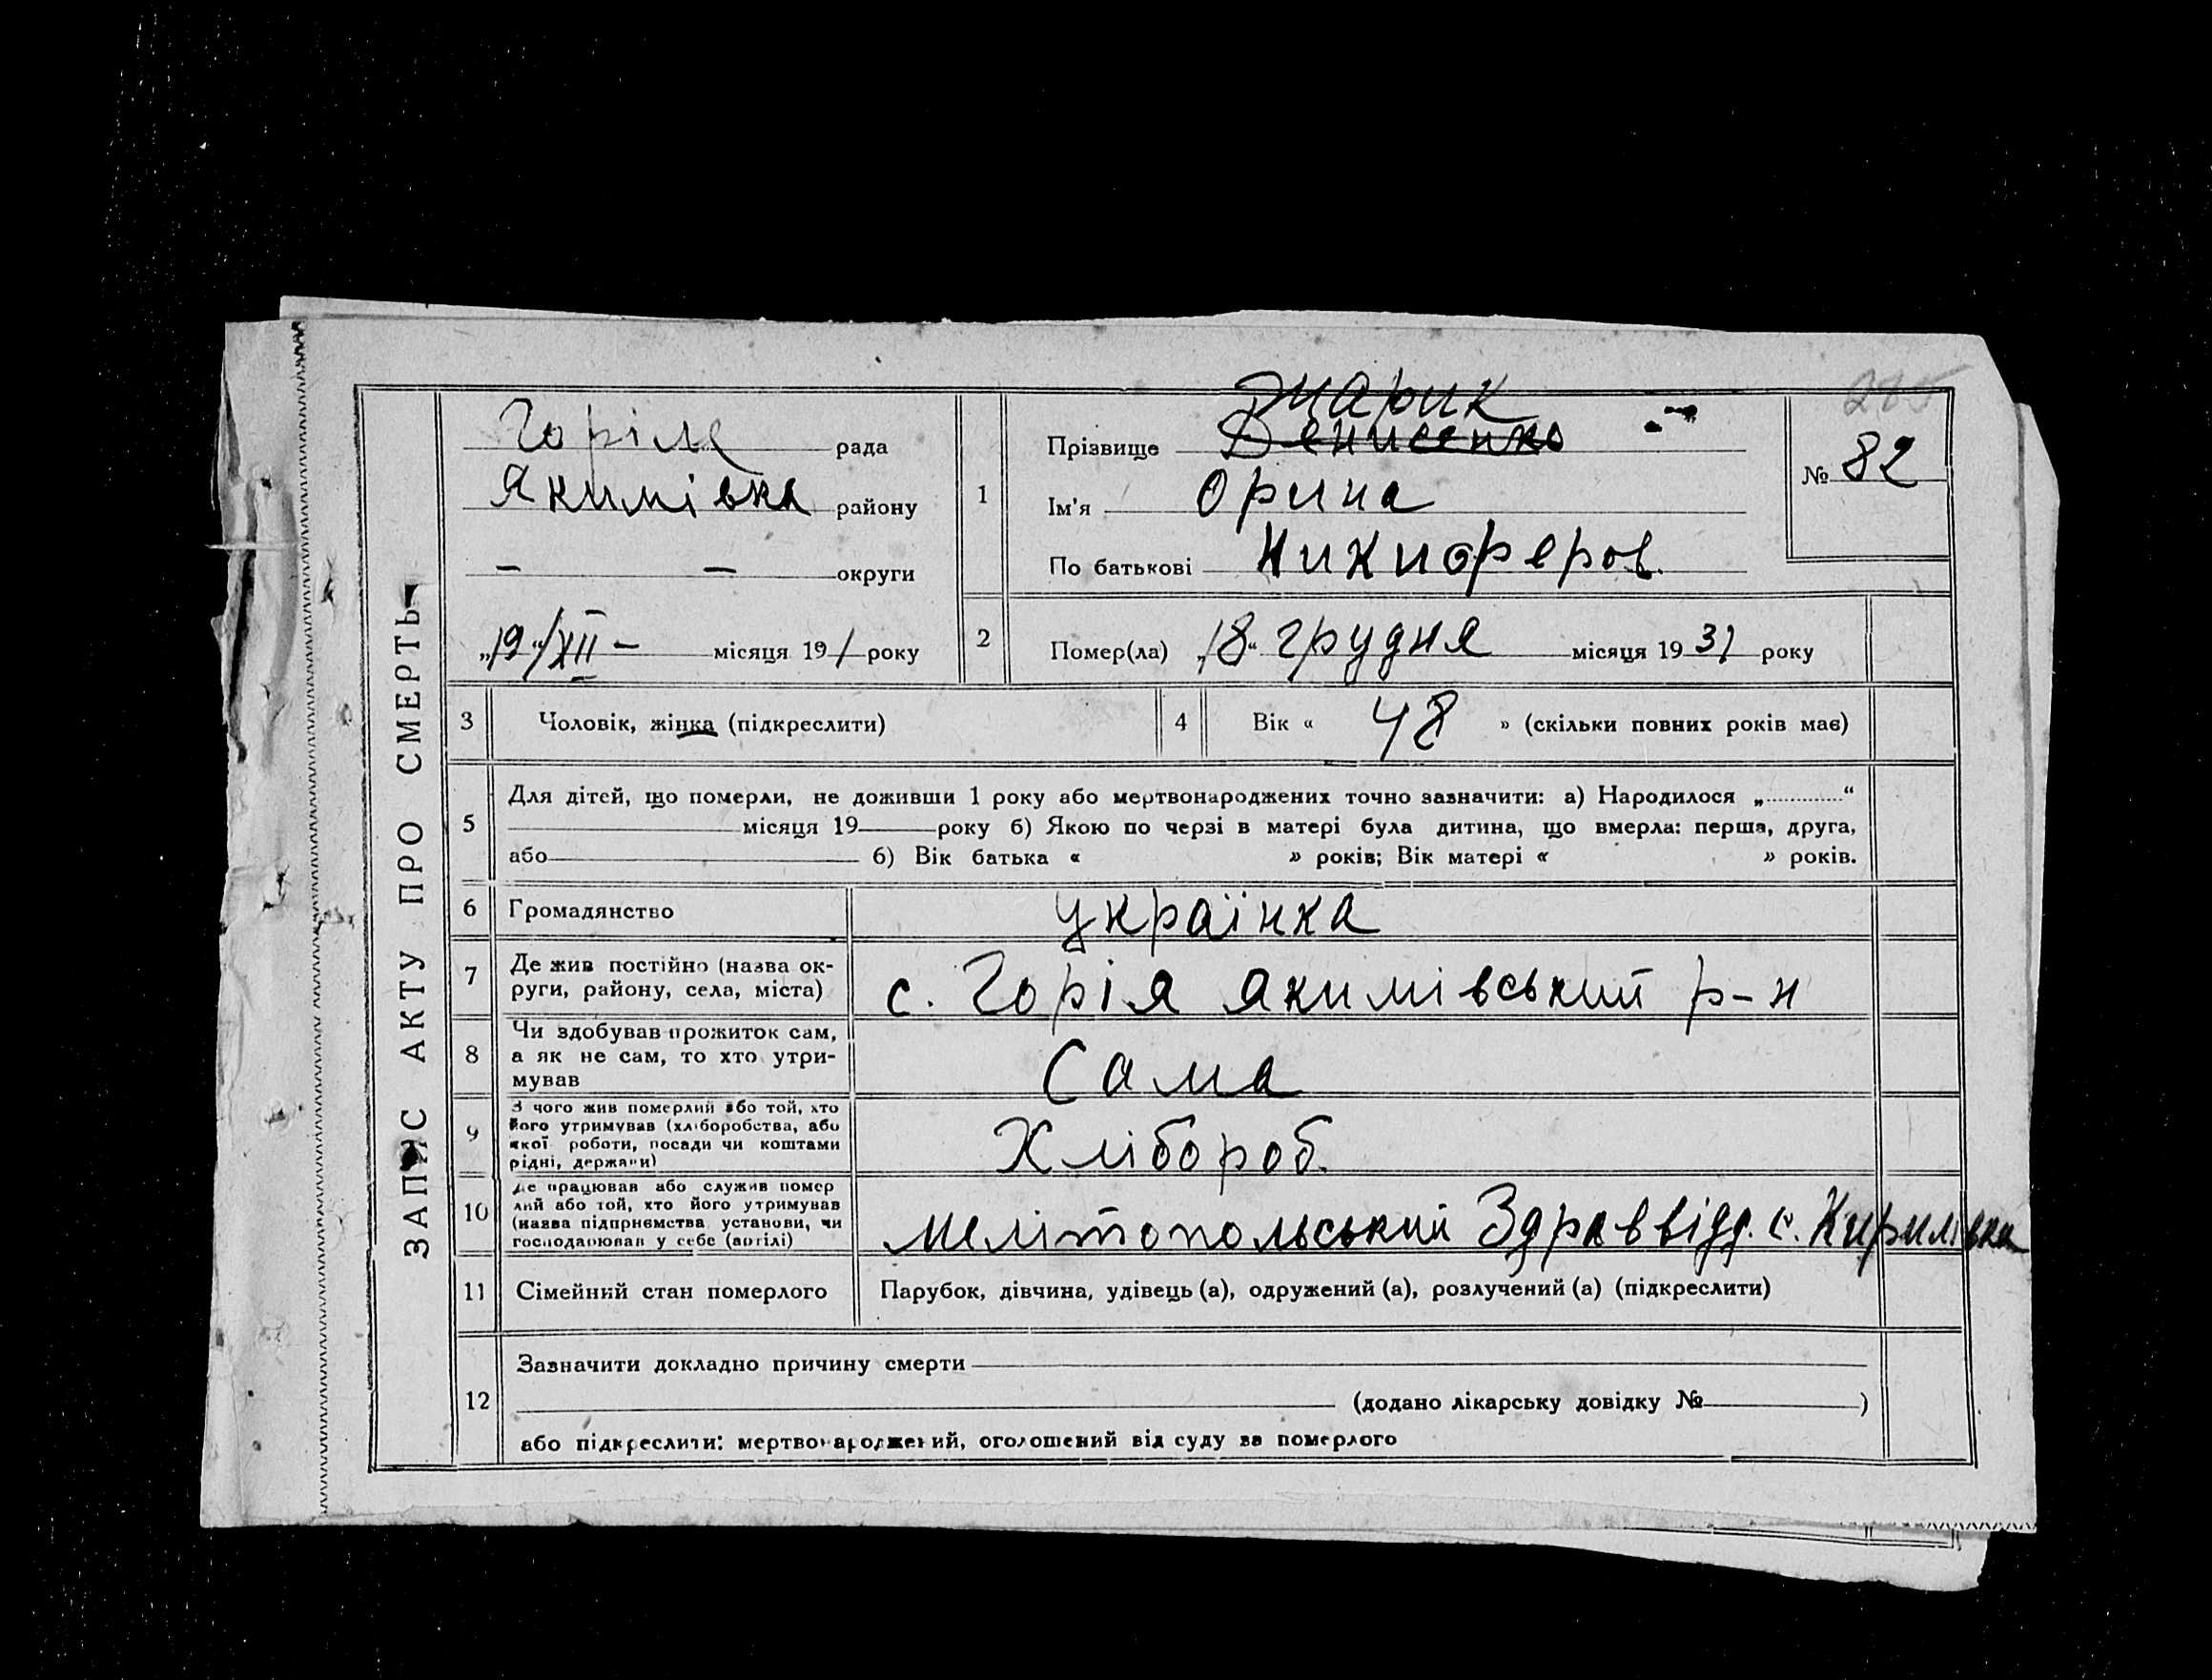 ЗАПИС АКТУ ПРО СМЕРТЬ
рада
Якимівка району
— — округи
„19“/XII – місяця 191 року
1
Прізвище Денисенко
Ім'я Орина
По батькові Никиферов.
№ 82
2
Помер(ла) „18“ грудня місяця 1931 року
3 Чоловік, жінка (підкреслити)
4 Вік « 48 » (скільки повних років має)
5
Для дітей, що померли, не доживши 1 року або мертвонароджених точно зазначити: а) Народилося „ “
місяця 19 року б) Якою по черзі в матері була дитина, що вмерла: перша, друга,
або б) Вік батька « » років; Вік матері « » років.
6 Громадянство українка
7 Де жив постійно (назва ок-
руги, району, села, міста) с. Горія Якимівський р-н
8 Чи здобував прожиток сам,
а як не сам, то хто утри-
мував Сама
9 З чого жив померлий або той, хто
його утримував (хліборобства, або
якої роботи, посади чи коштами
рідні, держави) Хлібороб.
10 Де працював або служив помер
лий або той, хто його утримував
(назва підприємства установи, чи
господарював у себе (артілі) Мелітопольський Здраввідд. с. Кирилівка
11 Сімейний стан померлого Парубок, дівчина, удівець (а), одружений (а), розлучений (а) (підкреслити)
12
Зазначити докладно причину смерти
(додано лікарську довідку № )
або підкреслити: мертвонароджений, оголошений від суду за померлого